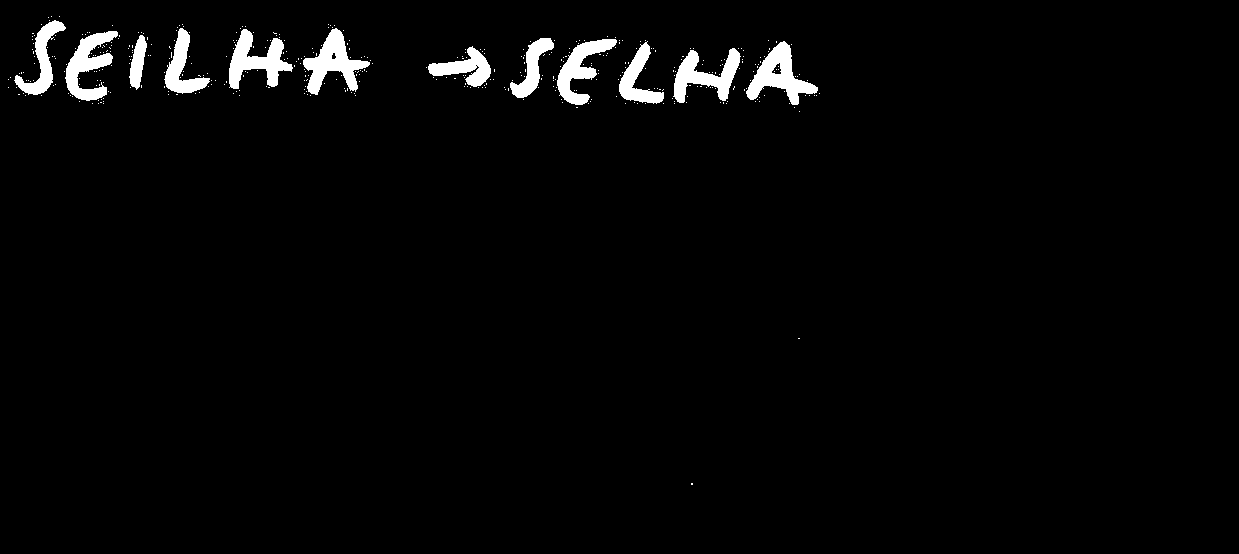 SEILHA → SELHA